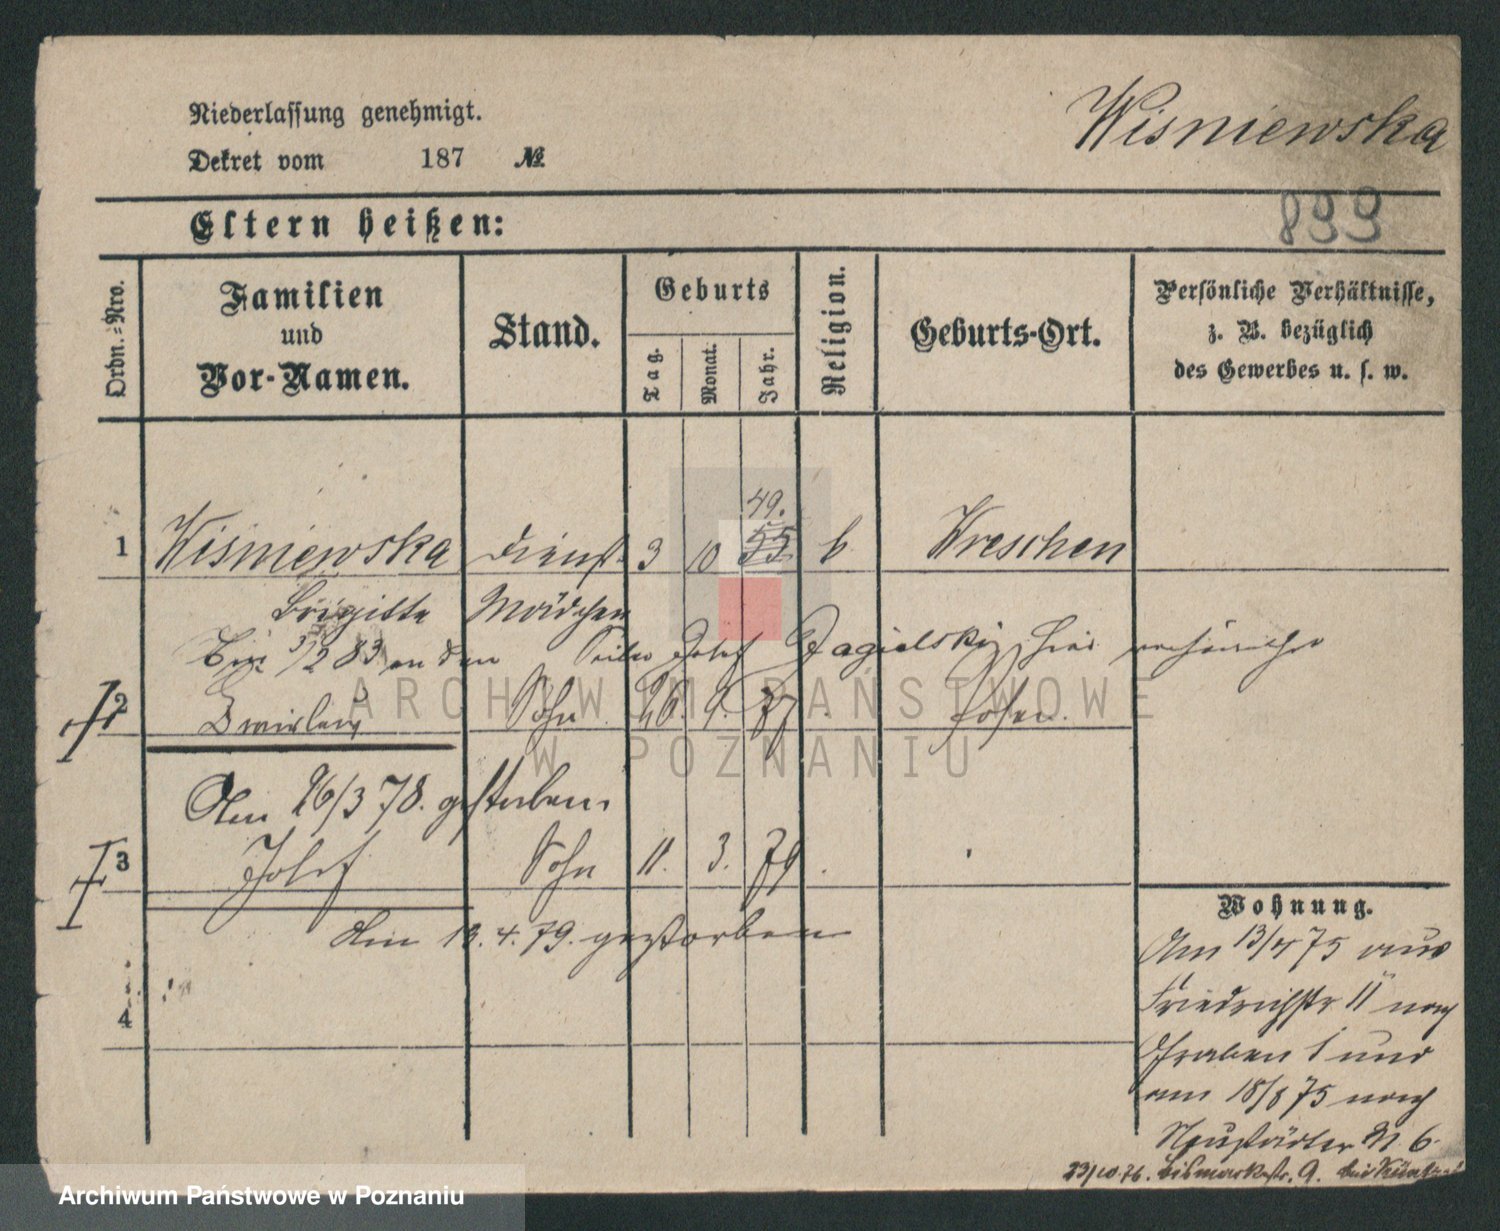 Niederlassung genehmigt.
Wisniewska
Dekret vom 187 №
Eltern heißen:
899
Ordn.-Nro.
Familien und Vor-Namen.
Stand.
Geburts
Tag.
Monat.
Jahr.
Religion.
Geburts-Ort.
Persönliche Verhältnisse, z. B. bezüglich des Gewerbes u. s. w.
49.
1 Wisniewska Dienst 3 10 55 k Wreschen
Brigitte Mädchen
3/2 83 an den Josef Jagielski hier
2 Sohn 26. 9. 77. Posen.
Am 26/3 78. gestorben.
3 Josef Sohn 11. 3. 79.
Am 13. 4. 79. gestorben
4
Wohnung.
Am 13/4 75 aus
Friedrichstr 11 nach
Graben 1 und
am 18/8 75 nach
Neustädter M 6.
23/10.76. Bismarckstr. 9. bei
ARCHIWUM PAŃSTWOWE
W POZNANIU
Archiwum Państwowe w Poznaniu